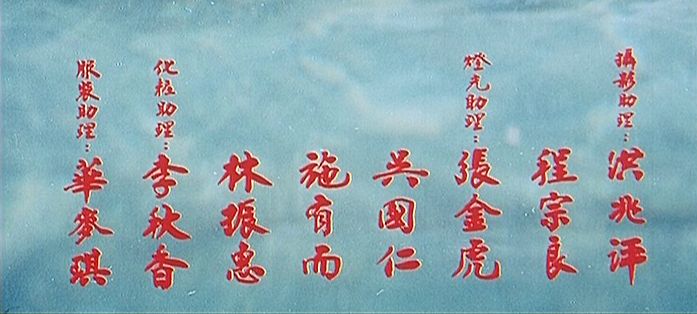 攝影助理：洪兆評
程宗良
燈光助理：張金虎
吳國仁
施有而
林振惠
化粧助理：李秋香
服裝助理：華麥琪